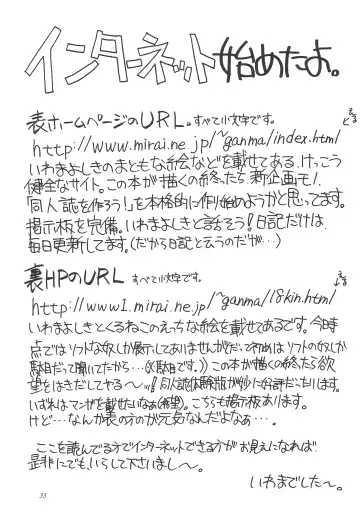 インターネット始めたよ。
表ホームページのURL。すべて小文字です。
http://www.mirai.ne.jp/~ganma/index.html
いわまよしきのまともな絵などを載せてある、けっこう
健全なサイト。この本が描くの終ったら、新企画モノ、
「同人誌を作ろう!」を本格的に作り始めようかと思ってます。
掲示板を完備。いわまよしきと話ろう!日記だけは、
毎日更新してます。(だから日記と云うのだが…)
裏HPのURL すべて小文字です。
http://www1.mirai.ne.jp/~ganma/18kin.html
いわまよしきとくるねこのえっちな絵を載せてあるです。今時
点ではソフトな奴しか展示してありませんが(だって初めはソフトの奴しか
駄目だって聞いてたから…(駄目です。))この本が描くの終たら欲
望をはきだしてやる〜!!同人誌体験版が少々合計だったりします。
いずれはマンガを載せたいなぁ(希望)。こちらも掲示板あります。
けど…なんか表の方が元気なんだよなぁ…。
ここを読んでる方でインターネットできる方がお見えになれば
是非にでも、いらして下さいまし〜。
いわまでした〜。
33